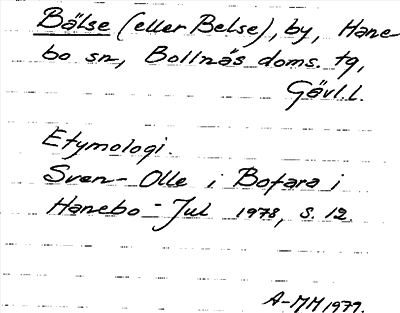 Bälse (eller Belse), by, Hane
bo sn, Bollnäs doms. tg,
Gävl.l.
Etymologi.
Sven-Olle i Bofara i
Hanebo-Jul 1978, s. 12.
A-MM 1979.